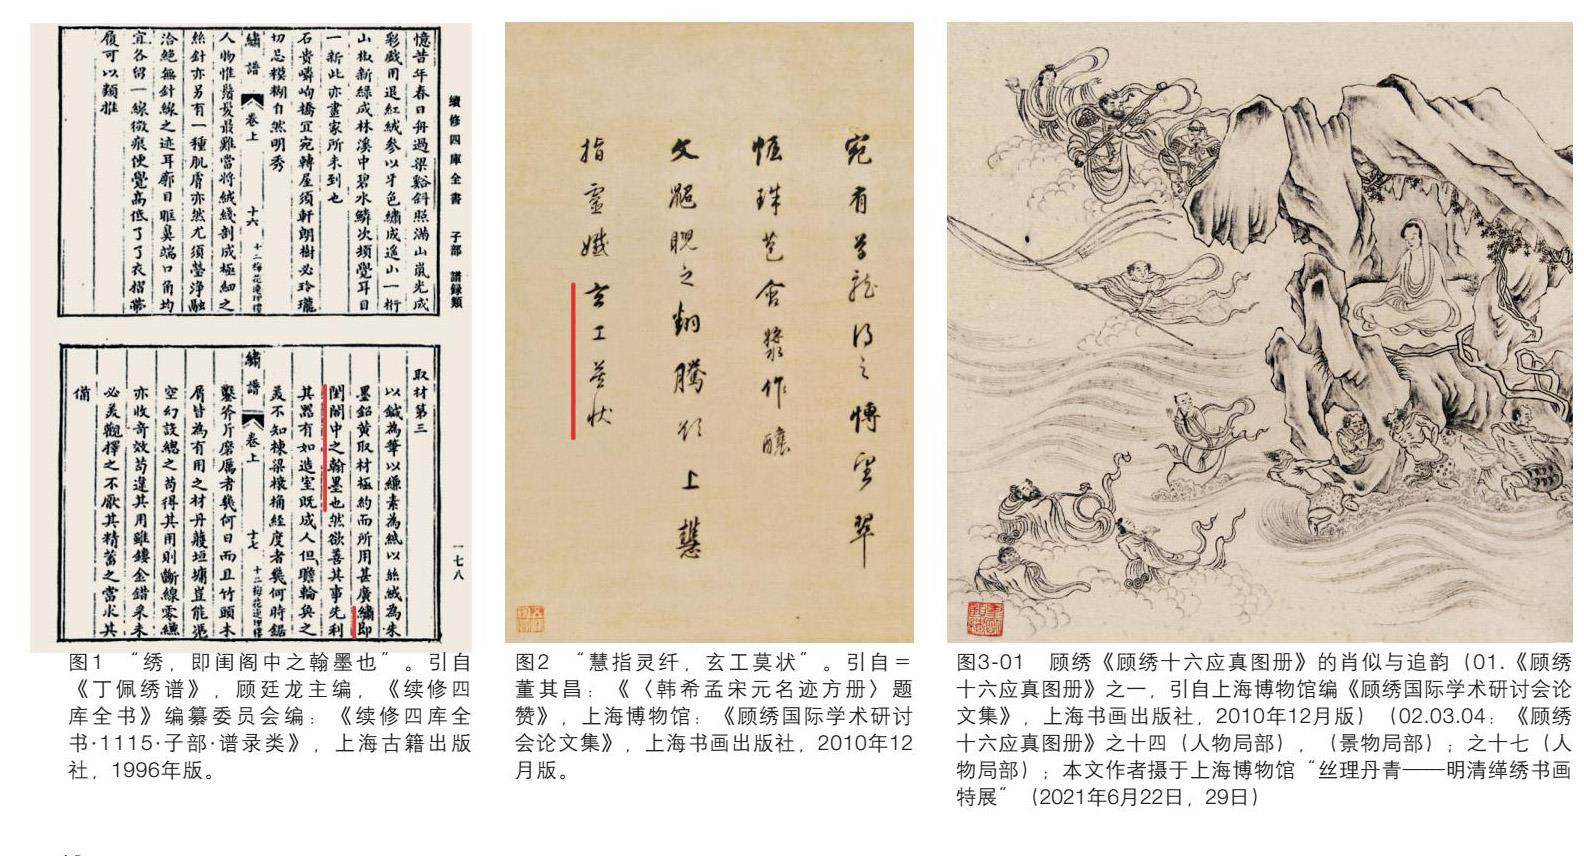 續修四庫全書 子部 譜録類
憶昔年春日舟過梁谿斜照滿山嵐光成
彩戲用退紅絨參以牙色繡成遙山一桁
山椒新綠成林溪中碧水鱗次頓覺耳目
一新此亦畫家所未到也
石貴嶙峋橋宜宛轉屋須軒朗樹必玲瓏
切忌糢糊自然明秀
繡譜 卷上 十六 十二梅花連理樓
人物惟鬚髮最難當將絨綫剖成極細之
絲針亦另有一種肌膚亦然尤須瑩淨融
洽絕無針線之迹耳廓目眶鼻端口角均
宜各留一線微痕使覺高低了了衣褶帶
履可以類推
一七八
取材第三
以鍼為筆以縑素為紙以絲絨為朱
墨鉛黃取材極約而所用甚廣繡即
閨閤中之翰墨也然欲善其事先利
其器有如造室既成人但瞻輪奐之
美不知棟梁榱桷經度者幾何時鋸
繡譜 卷上 十七 十二梅花連理樓
鑿斧斤磨厲者幾何日而且竹頭木
屑皆為有用之材丹雘垣墉豈能憑
空幻設總之苟得其用則斷線零縑
亦收奇效苟違其用雖鏤金錯采未
必美觀擇之不厭其精蓄之當求其
備
宛有草龍得之博望翠
幄珠苞含漿作釀
文鼯睨之翻騰欲上慧
指靈孅玄工莫狀
图1 “绣，即闺阁中之翰墨也”。引自
《丁佩绣谱》，顾廷龙主编，《续修四
库全书》编纂委员会编：《续修四库全
书·1115·子部·谱录类》，上海古籍出版
社，1996年版。
图2 “慧指灵纤，玄工莫状”。引自＝
董其昌：《〈韩希孟宋元名迹方册〉题
赞》，上海博物馆：《顾绣国际学术研讨
会论文集》，上海书画出版社，2010年12
月版。
图3-01 顾绣《顾绣十六应真图册》的肖似与追韵（01.《顾绣
十六应真图册》之一，引自上海博物馆编《顾绣国际学术研讨会论
文集》，上海书画出版社，2010年12月版）（02.03.04：《顾绣
十六应真图册》之十四（人物局部），（景物局部）；之十七（人
物局部）；本文作者摄于上海博物馆“丝理丹青——明清缂绣书画
特展”（2021年6月22日，29日）